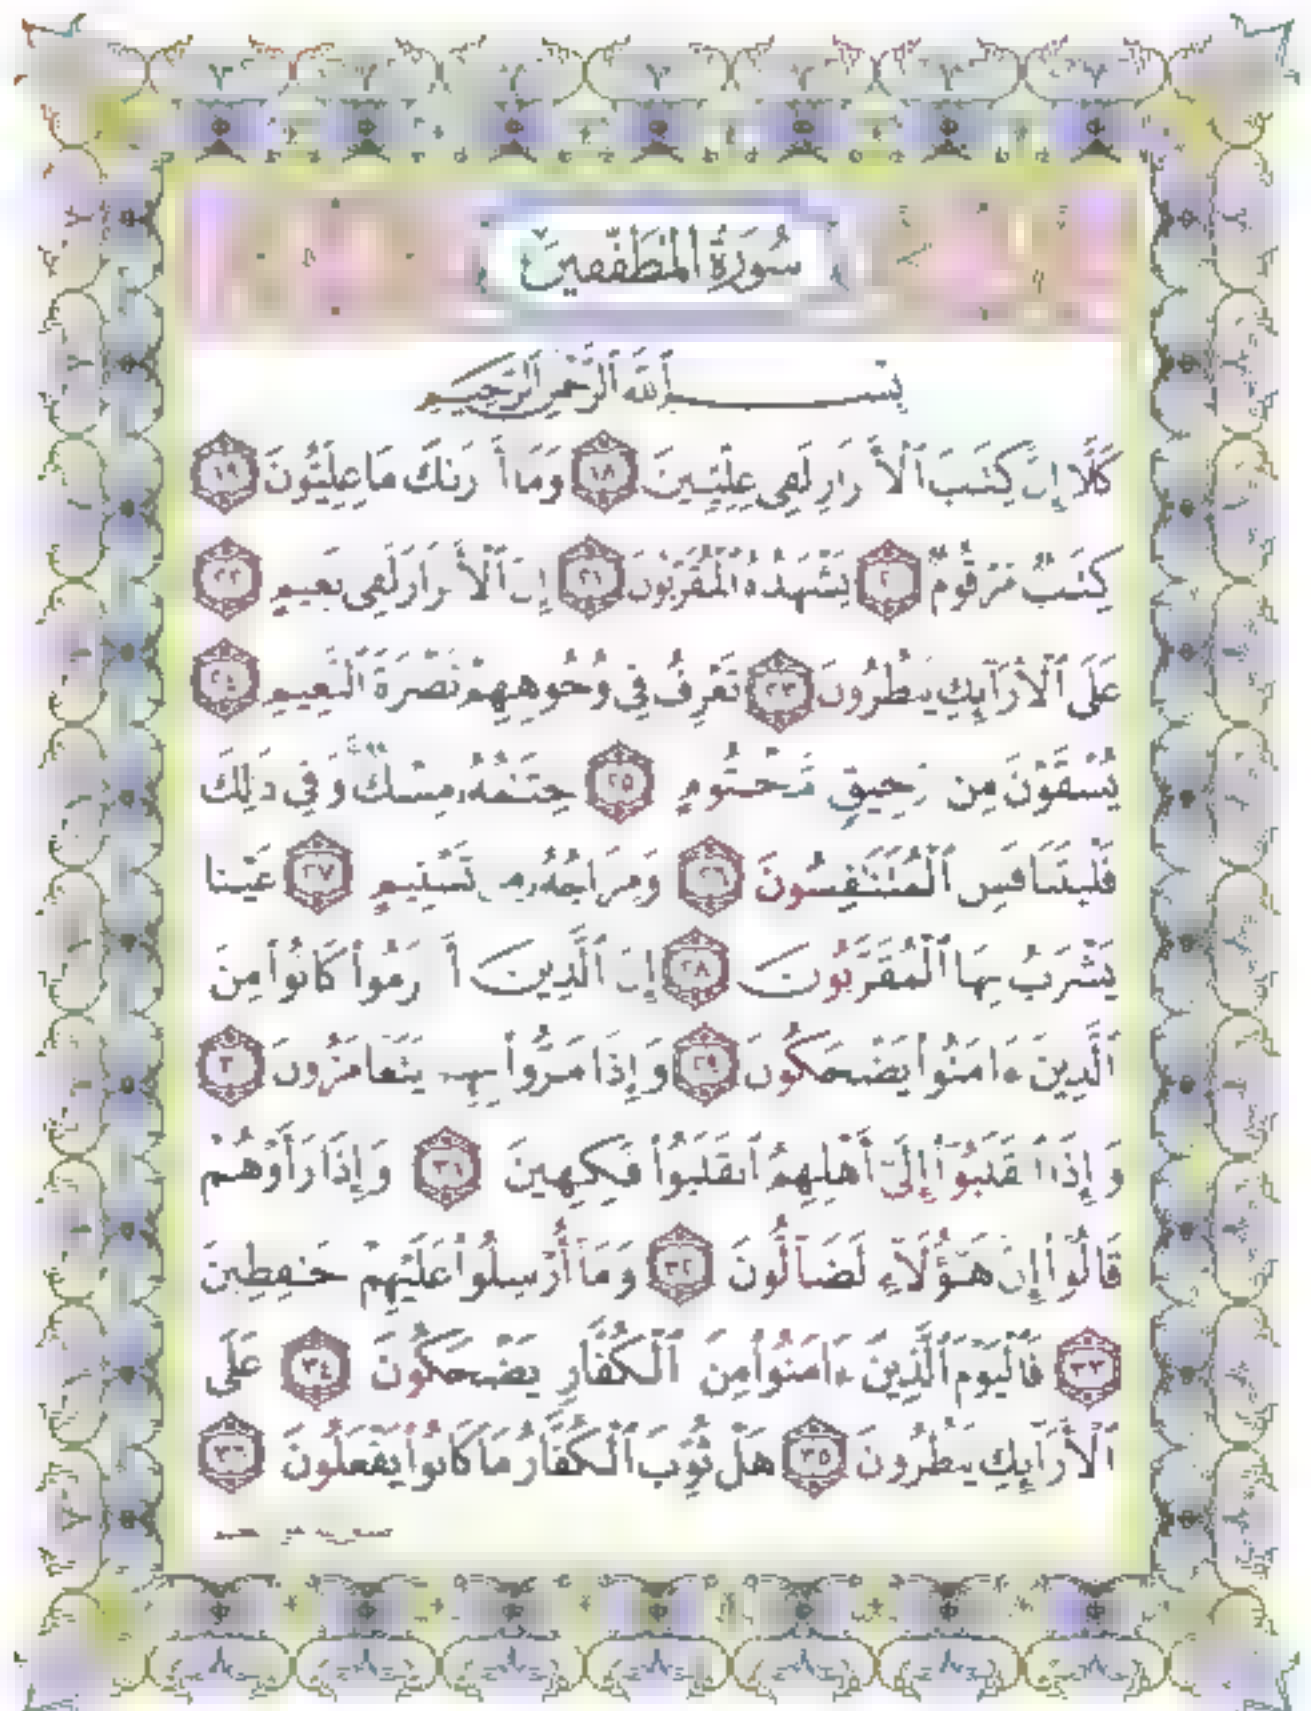 سُورَةُ الْمُطَفِّفِينَ
بِسْمِ ٱللَّهِ ٱلرَّحْمَٰنِ ٱلرَّحِيمِ
كَلَّا إِنَّ كِتَٰبَ ٱلْأَبْرَارِ لَفِي عِلِّيِّينَ ١٨ وَمَا أَدْرَىٰكَ مَا عِلِّيُّونَ ١٩
كِتَٰبٌ مَّرْقُومٌ ٢٠ يَشْهَدُهُ ٱلْمُقَرَّبُونَ ٢١ إِنَّ ٱلْأَبْرَارَ لَفِي نَعِيمٍ ٢٢
عَلَى ٱلْأَرَآئِكِ يَنظُرُونَ ٢٣ تَعْرِفُ فِي وُجُوهِهِمْ نَضْرَةَ ٱلنَّعِيمِ ٢٤
يُسْقَوْنَ مِن رَّحِيقٍ مَّخْتُومٍ ٢٥ خِتَٰمُهُۥ مِسْكٌ وَفِي ذَٰلِكَ
فَلْيَتَنَافَسِ ٱلْمُتَنَٰفِسُونَ ٢٦ وَمِزَاجُهُۥ مِن تَسْنِيمٍ ٢٧ عَيْنًا
يَشْرَبُ بِهَا ٱلْمُقَرَّبُونَ ٢٨ إِنَّ ٱلَّذِينَ أَجْرَمُوا۟ كَانُوا۟ مِنَ
ٱلَّذِينَ ءَامَنُوا۟ يَضْحَكُونَ ٢٩ وَإِذَا مَرُّوا۟ بِهِمْ يَتَغَامَزُونَ ٣٠
وَإِذَا ٱنقَلَبُوٓا۟ إِلَىٰٓ أَهْلِهِمُ ٱنقَلَبُوا۟ فَكِهِينَ ٣١ وَإِذَا رَأَوْهُمْ
قَالُوٓا۟ إِنَّ هَٰٓؤُلَآءِ لَضَآلُّونَ ٣٢ وَمَآ أُرْسِلُوا۟ عَلَيْهِمْ حَٰفِظِينَ
٣٣ فَٱلْيَوْمَ ٱلَّذِينَ ءَامَنُوا۟ مِنَ ٱلْكُفَّارِ يَضْحَكُونَ ٣٤ عَلَى
ٱلْأَرَآئِكِ يَنظُرُونَ ٣٥ هَلْ ثُوِّبَ ٱلْكُفَّارُ مَا كَانُوا۟ يَفْعَلُونَ ٣٦